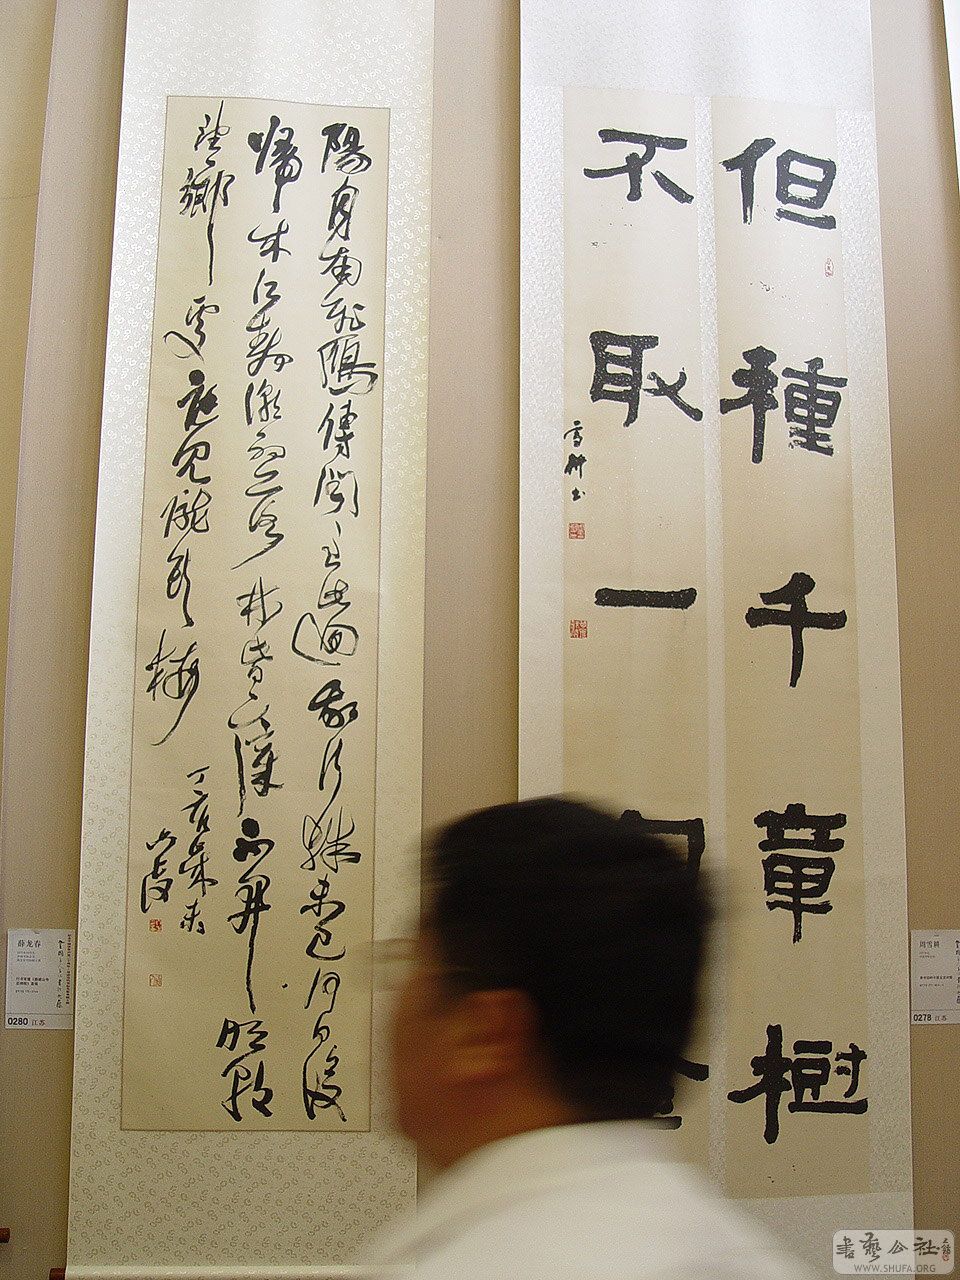 但種千章樹
不取一
雪耕書
陽月南飛雁傳聞至此迴
我行殊未已何日復
歸來江靜潮初落林昏瘴不開明朝
望鄉處應見隴頭梅
丁亥歲末
薛龙春
0280 江苏
周雪耕
0278 江苏
書藝公社
WWW.SHUFA.ORG